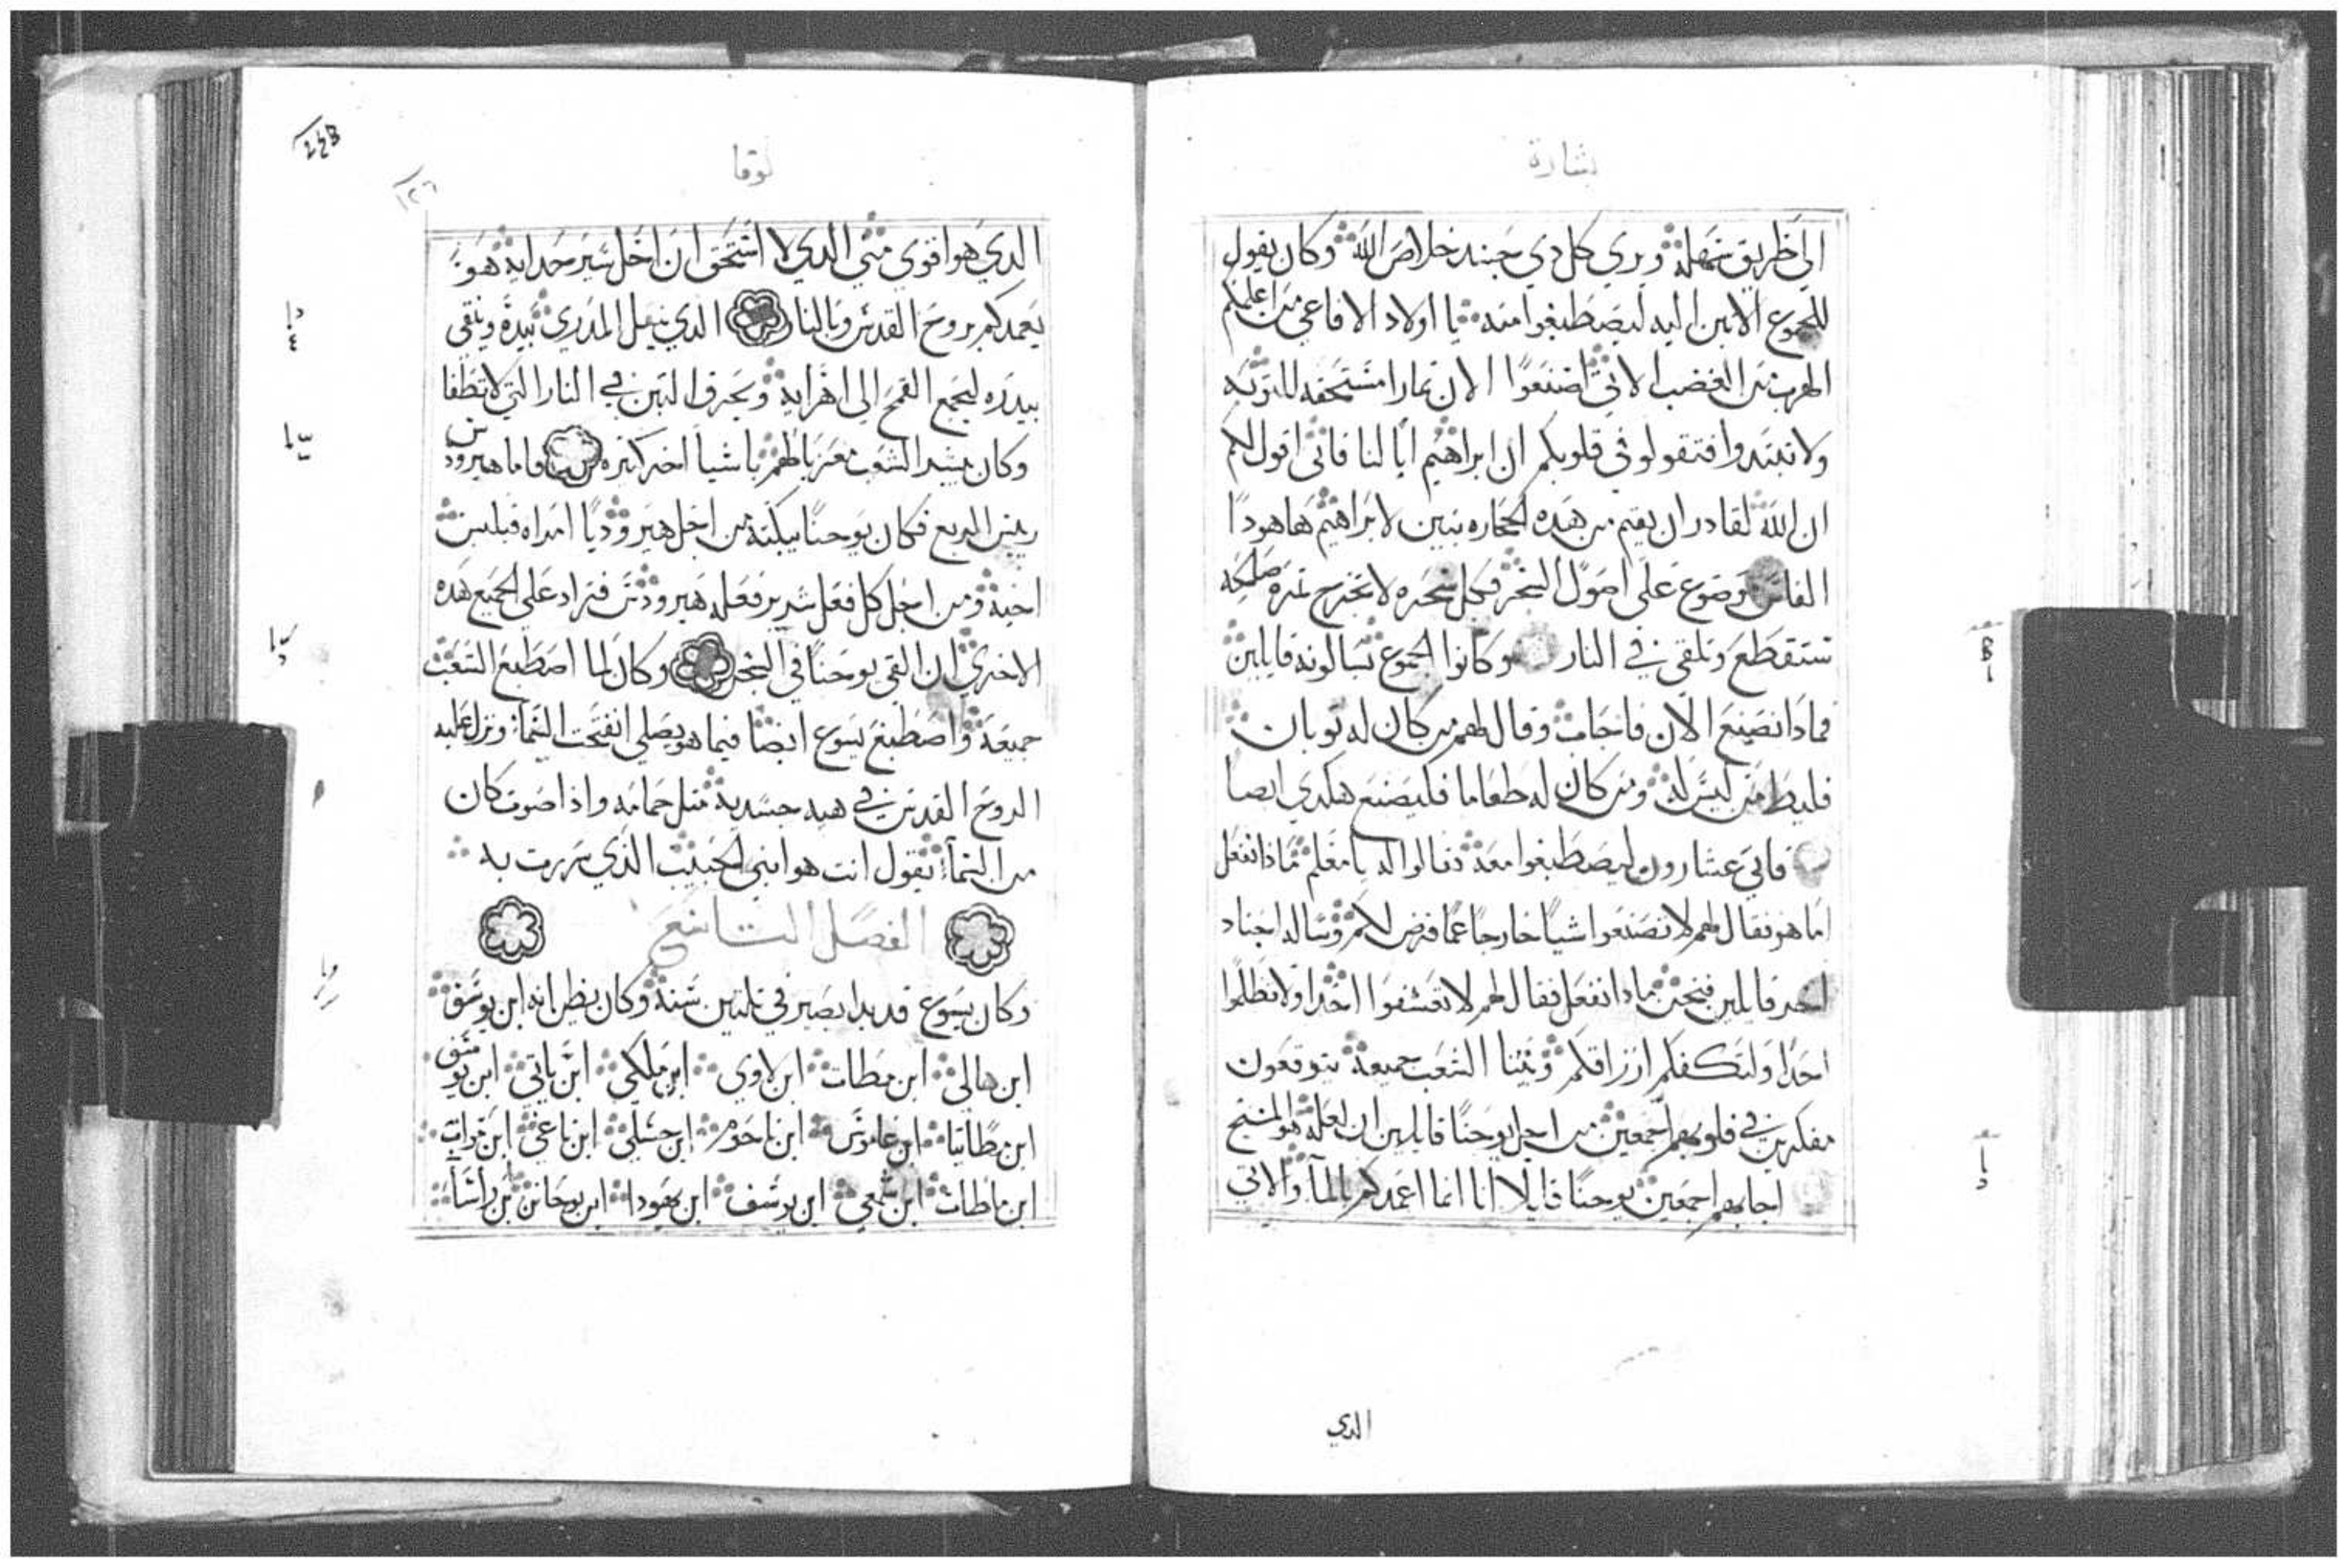 بشارة
الي طريق سهله ويري كل دي جسد خلاص الله وكان يقول
للجموع الاتين اليه ليصطبغوا منه يا اولاد الافاعي من اعلمكم
الهرب من الغضب الاتي اصنعوا الان تمارا مستحقه للتوبه
ولا تبتدوا فتقولو في قلوبكم ان ابراهيم ابا لنا فاني اقول لكم
ان الله لقادر ان يقيم من هده الحجاره بنين لابراهيم هاهودا
الفاس وضوع علي اصول الشجر فكل شجره لا تخرج تمره صلحه
ستقطع وتلقي في النار وكانوا الجموع تسالونه قايلين
فمادا نصنع الان فاجاب وقال لهم من كان له توبان
فليعط من ليس له ومن كان له طعاما فليصنع هكدي ايضا
فاتي عشارون ليصطبغوا معه فقالوا له يا معلم مادا نفعل
اما هو فقال لهم لا تصنعوا شيا خارجا عما فرض لكم وساله اجناد
اخر قايلين فنحن مادا نفعل فقال لهم لا تعسفوا احدا ولا تظلموا
احدا ولتكفكم ارزاقكم وبينا الشعب جميعه يتوقعون
مفكرين في قلوبهم اجمعين من اجل يوحنا قايلين ان لعله هو المسيح
اجابهم اجمعين يوحنا قايلا انا انما اعمدكم بالما والاتي
الدي
لوقا
الدي هو اقوي مني الدي لا استحق ان احل سير حدايه هو
يعمدكم بروح القدس وبالنار الدي بيده ويقي
بيدره ليجمع القمح الي اهرايه ويحرق التبن في النار التي لا تطفا
وكان يبشر الشعب معزيا لهم باشيا اخر كتيره فاما هيرودس
ريس الربع فكان يوحنا يبكته من اجل هيروديا امراه فيلبس
اخيه ومن اجل كل فعل شرير فعله هيرودس فزاد علي الجميع هده
الاخري ان القي يوحنا في السجن وكان لما اصطبغ الشعب
جميعه واصطبغ يسوع ايضا فيما هو يصلي انفتحت السما ونزل عليه
الروح القدس في هيه جسديه متل حمامه واذا صوت كان
من السما يقول انت هو ابني الحبيب الذي سررت به
الفصل التاسع
وكان يسوع قد بدا يصير في تلتين سنه وكان يظن انه ابن يوسف
ابن هالي ابن مطات ابن لاوي ابن ملكي ابن ياني ابن يوسف
ابن مطاتيا ابن عاموس ابن ناحوم ابن حسلي ابن ناغي ابن مات
ابن ماطات ابن شمعي ابن يوسف ابن يهودا ابن يوحانن بن راسا